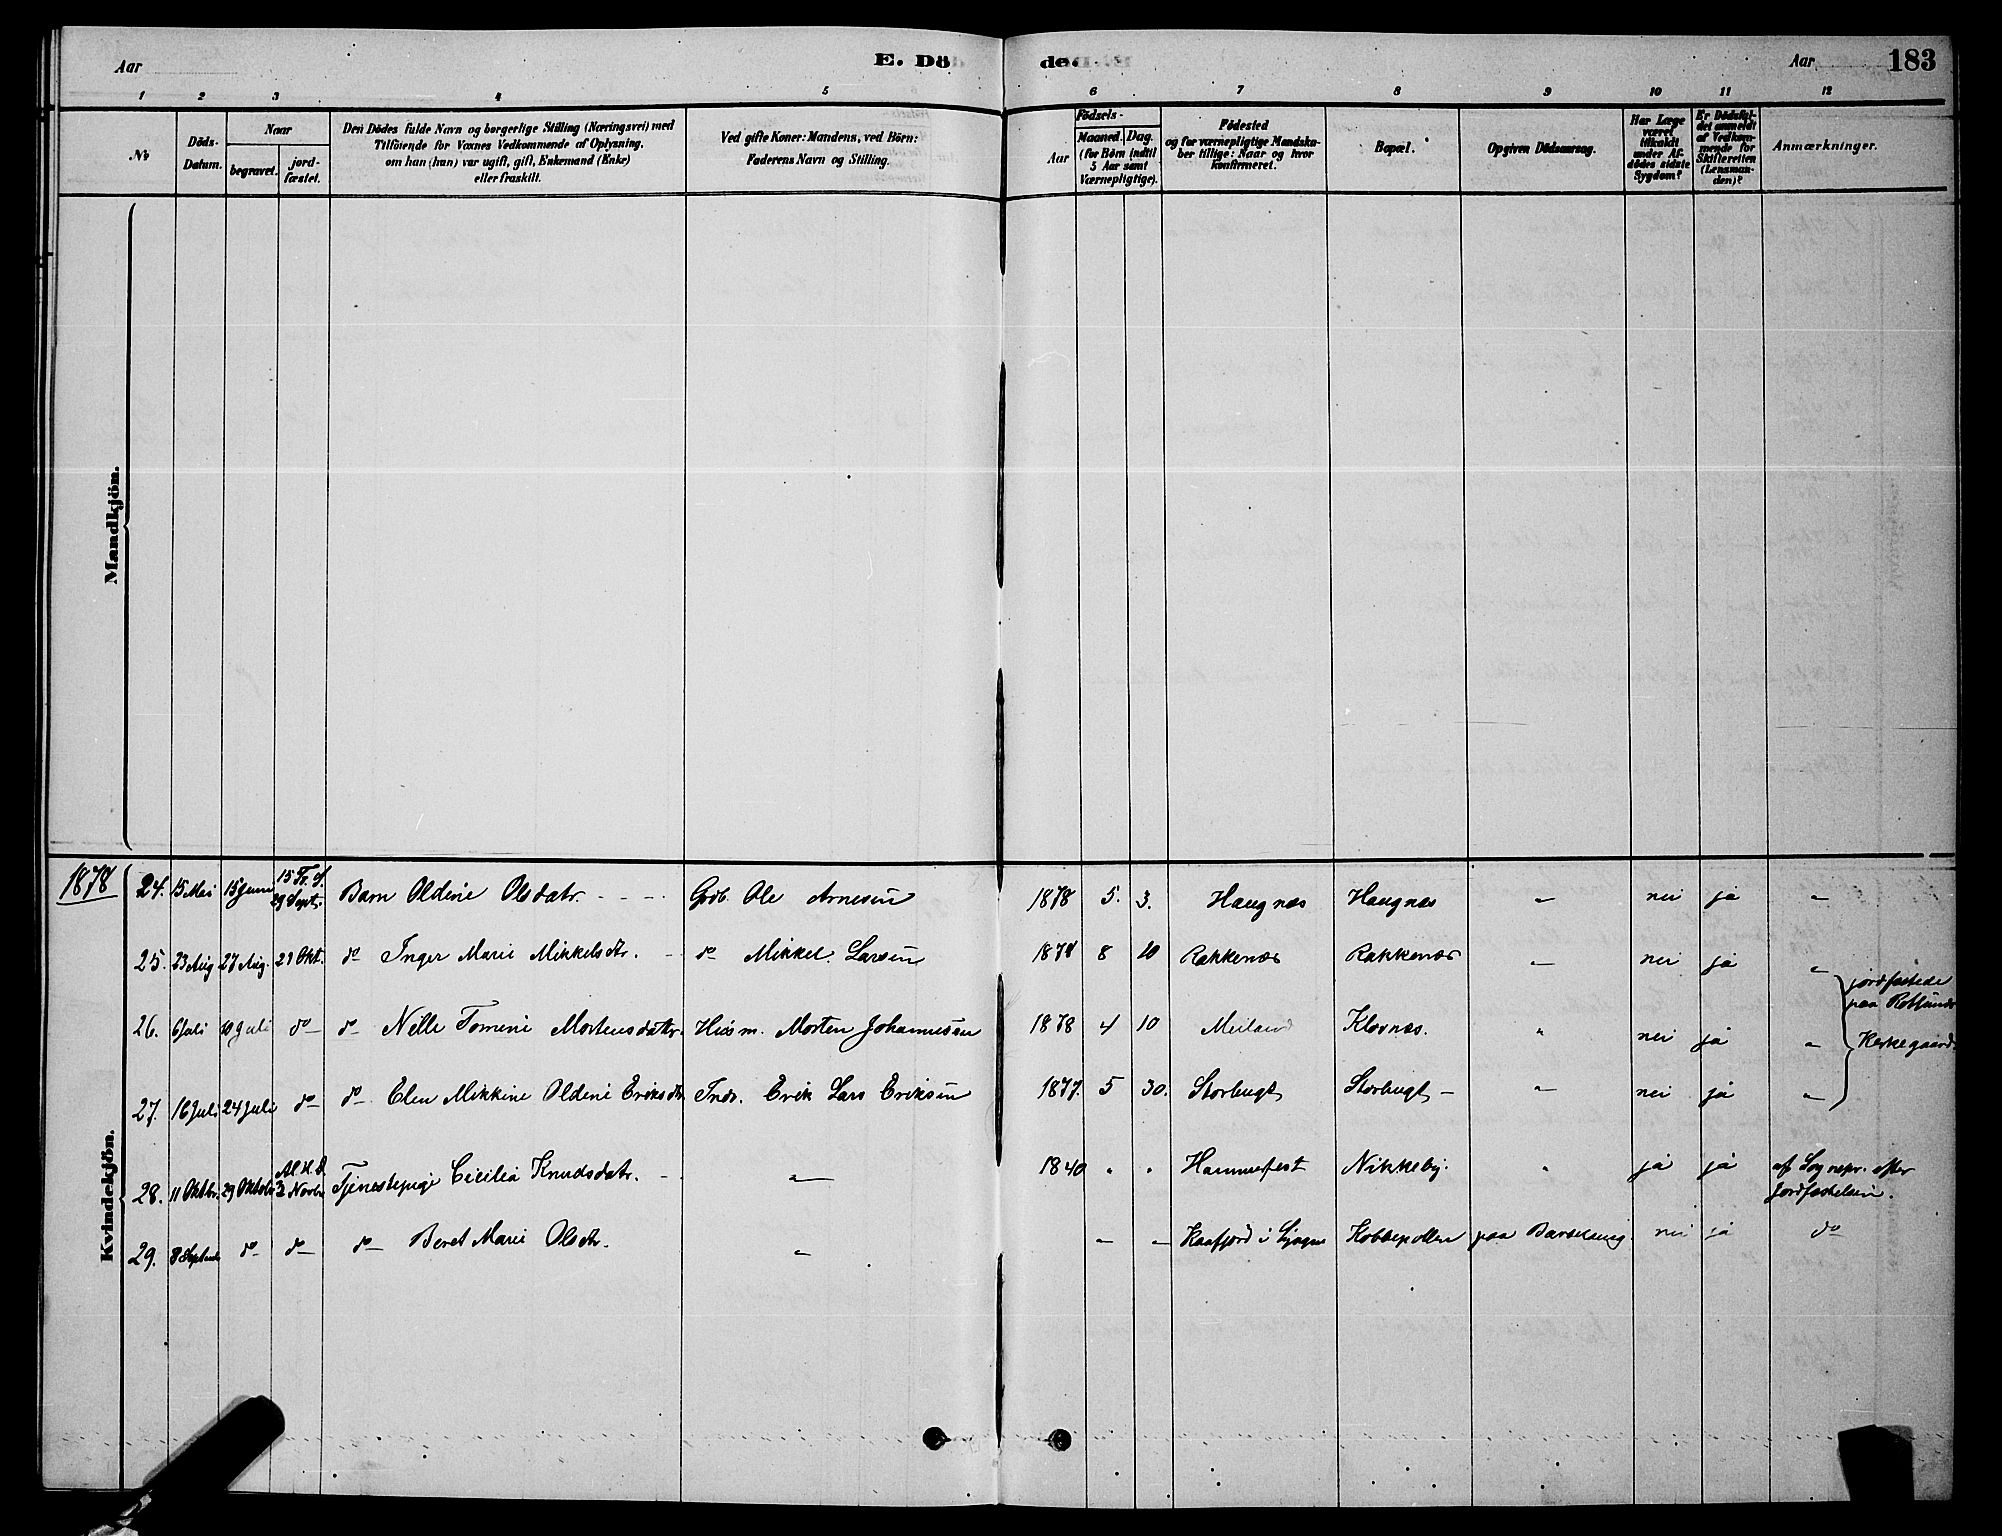 Aar
E. Döde.
Aar
183
1 2 3 4 5 6 7 8 9 10 11 12
No
Döds-Datum.
Naar
begravet.
jord-fæstet.
Den Dödes fulde Navn og borgerlige Stilling (Næringsvei) med
Tilföiende for Voxnes Vedkommende af Oplysning,
om han (hun) var ugift, gift, Enkemand (Enke)
eller fraskilt.
Ved gifte Koner: Mandens, ved Börn:
Faderens Navn og Stilling.
Födsels-
Aar
Maaned. Dag.
(for Börn indtil
5 Aar samt
Værnepligtige).
Födested
og for værnepligtige Mandska-
ber tillige: Naar og hvor
konfirmeret.
Bopæl.
Opgiven Dödsaarsag.
Har Læge
været
tilkaldt
under Af-
dödes sidste
Sygdom?
Er Dödsfal-
det anmeldt
af Vedkom-
mende for
Skifteretten
(Lensman-
den)?
Anmærkninger.
Mandkjön.
Kvindekjön.
1878
24. 15 Mai 15 Juni 15 Tr. S. 29 Sept. Barn Oldine Olsdatr. Grdb. Ole Arnesen 1878 5. 3. Haugnæs Haugnæs " nei ja "
25. 23 Aug 27 Aug. 27 Okt. do Inger Marie Mikkelsdtr. do Mikkel Larsen 1878 8 10 Rakkenæs Rakkenæs " nei ja "
26. 6 Juli 10 Juli do do Nelle Tomine Mortensdatr. Huusm. Morten Johannessen 1878 4 10 Meiland Klovnæs. " nei ja "
27. 16 Juli 24 Juli do do Elen Mikkine Oldine Eriksdtr Indr. Erik Lars Eriksen 1877. 5 30. Storbugt Storbugt " nei ja "
jordfæstede
paa Rotsund
Kirkegaard.
28. 11 Oktbr. 29 Oktbr Al. H. D. 3 Novbr Tjenestepige Cicilia Knudsdatr. " 1840 " " Hammerfest Nikkeby. " ja ja af Sognepr. efter
Jordfæstelsen.
29. 8 Septemb do do do Beret Marie Olsdtr. " " " Kaafjord i Lyngen Kobbepollen paa Barselseng nei ja do